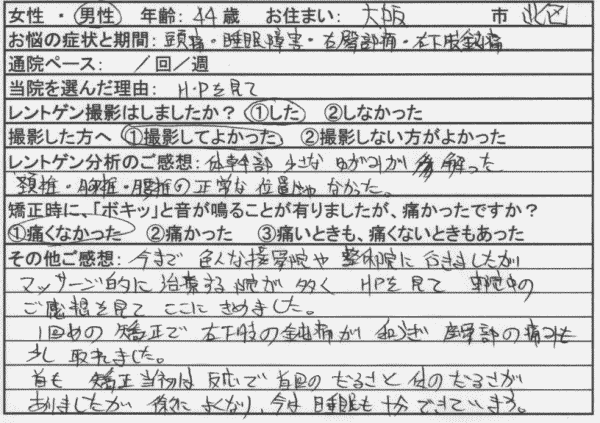 女性 ・ 男性 年齢: 44 歳 お住まい: 大阪 市 北区
お悩の症状と期間: 頭痛・睡眠障害・右臀部痛・右下肢鈍痛
通院ペース: /回/週
当院を選んだ理由: H・Pを見て
レントゲン撮影はしましたか? ①した ②しなかった
撮影した方へ ①撮影してよかった ②撮影しない方がよかった
レントゲン分析のご感想: 体幹部 少さな ゆがみが 解った
頚椎・胸椎・腰椎の正常な位置じゃなかった。
矯正時に、「ボキッ」と音が鳴ることが有りましたが、痛かったですか?
①痛くなかった ②痛かった ③痛いときも、痛くないときもあった
その他ご感想: 今まで 色んな接骨院や 整体院に 行きましたが
マッサージ的に 治療する院が 多く HPを見て 来院中の
ご感想を見て ここに きめました。
1回めの 矯正で 右下肢の鈍痛が 和らぎ 臀部の痛みも
少し 取れました。
首も 矯正当初は 反応で 首回の だるさと 体の だるさが
ありましたが 徐々に よくなり、今は 睡眠も 十分 できています。